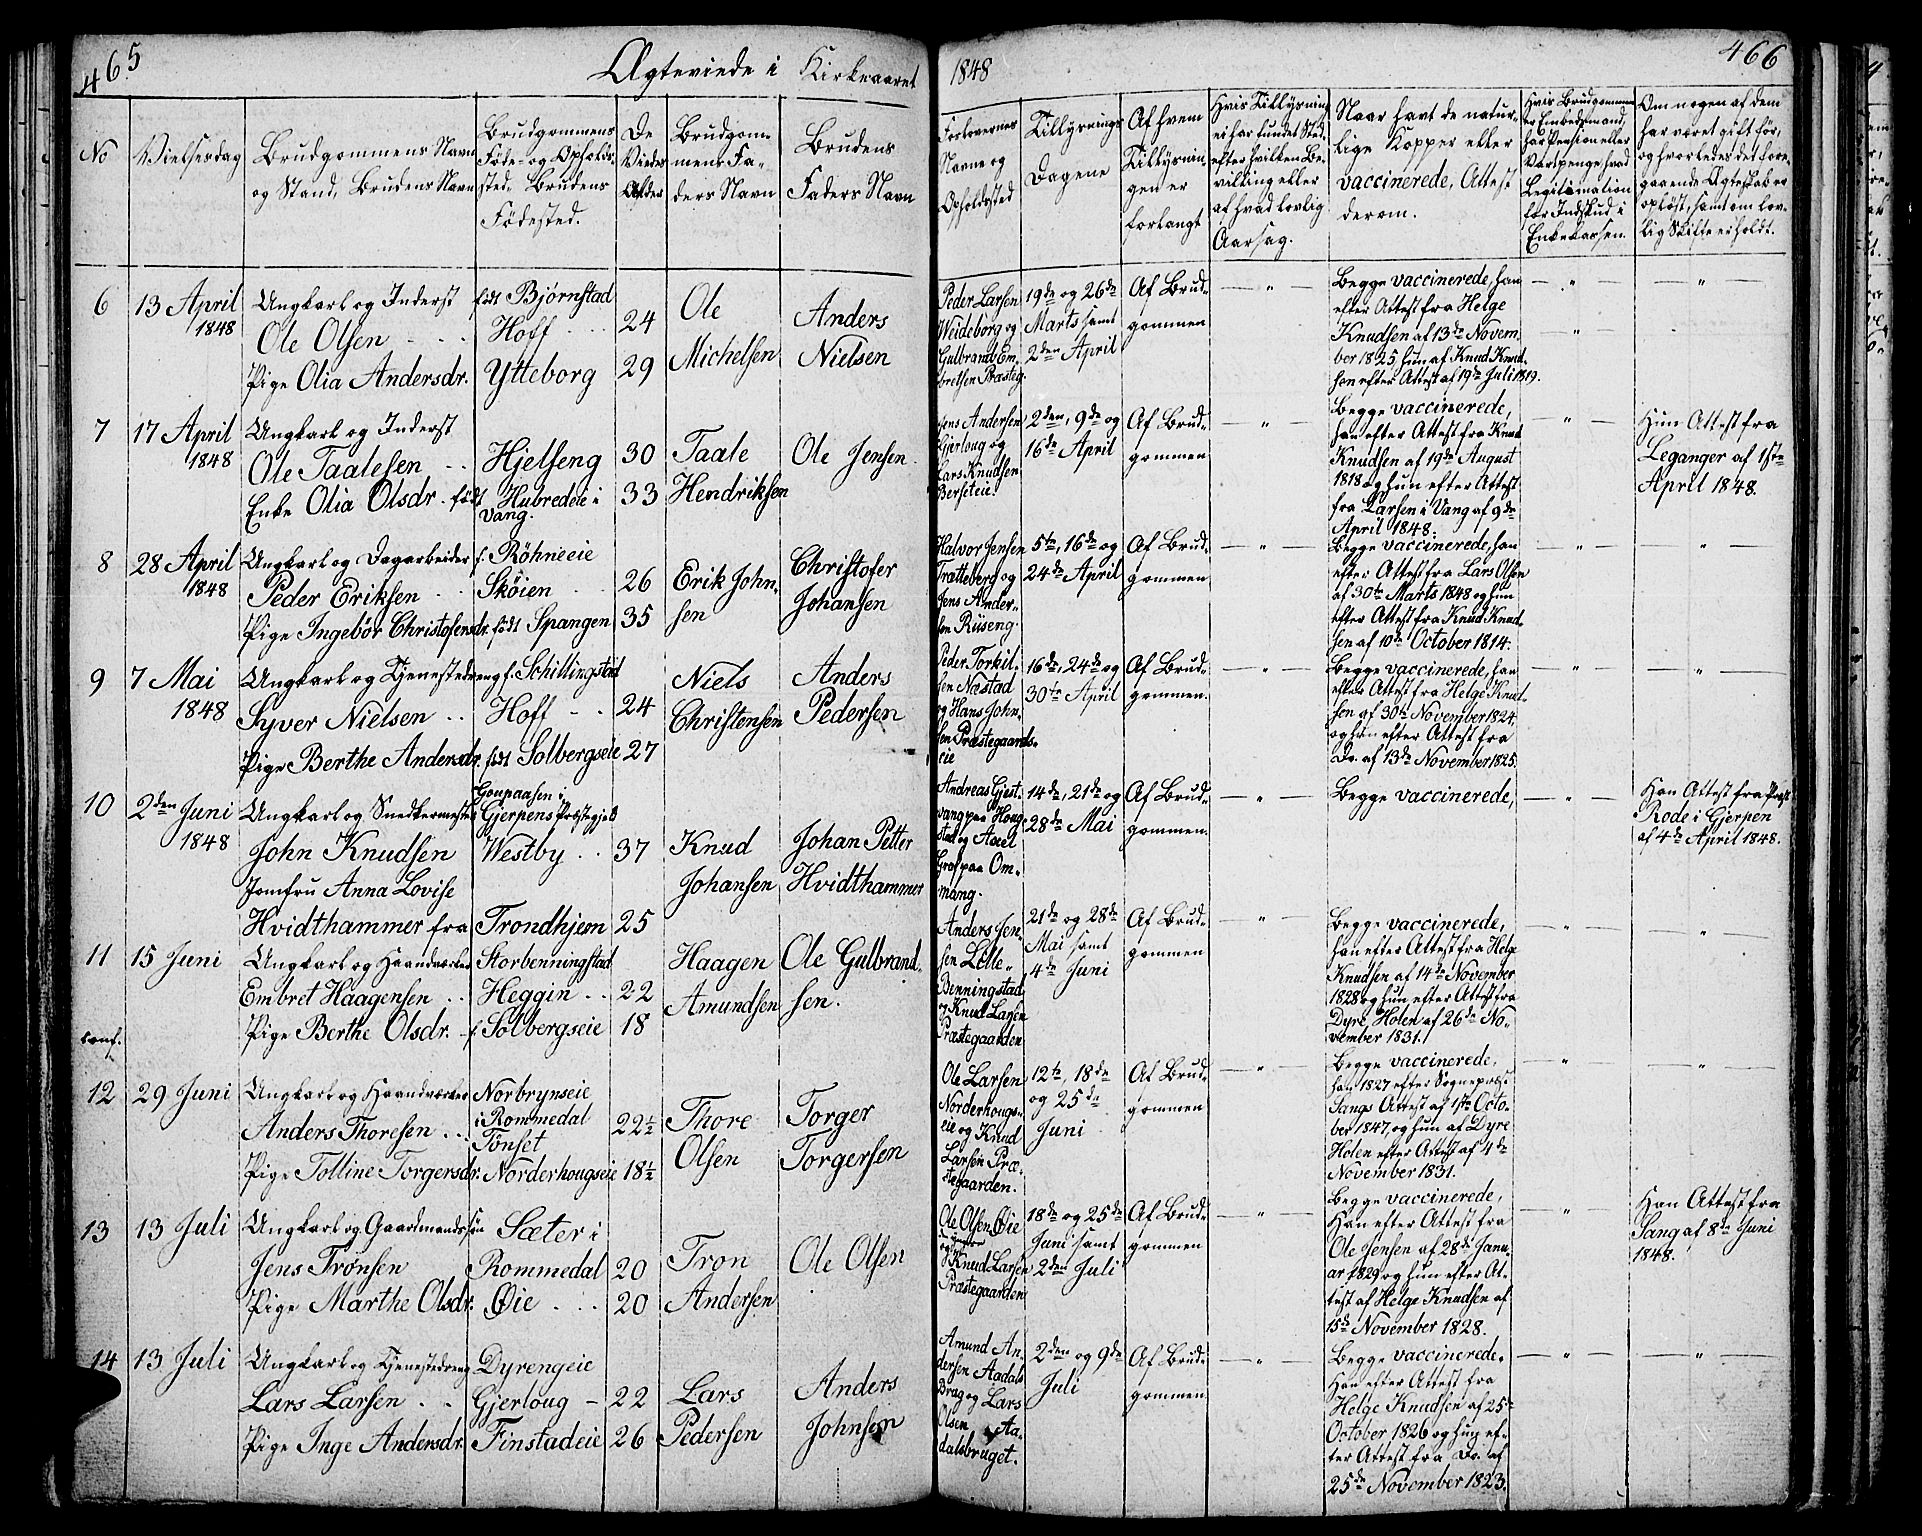 465
Ægteviede i Kirkeaaret
1848
466
No
Vielsesdag
Brudgommens Navn
og Stand, Brudens Navn
Brudgommens
Føde- og Opholds-
sted. Brudens
Födested.
De
Viedes
Alder
Brudgom-
mens Fa-
ders Navn
Brudens
Faders Navn
Forlovernes
Navne og
Opholdssted
Tillysnings
Dagene
Af hvem
Tillysnin-
gen er
forlangt
Hvis Tillysning
ei har fundet Sted
efter hvilken Be-
villing eller
af hvad lovlig
Aarsag.
Naar havt de natur-
lige Kopper eller
vaccinerede, Attest
derom.
Hvis Brudgommen
er Embedsmand,
har Pension eller
Vartpenge hvad
Legitimation
for Indskud i
Enkekassen.
Om nogen af dem
har været gift før,
og hvorledes det fore-
gaaende Ægteskab er
opløst, samt om lov-
lig Skifte er holdt.
6
13 April
1848
Ungkarl og Inderst
Ole Olsen
Pige Olia Andersdr.
født Bjørnstad
Hoff
Ytteborg
24
29
Ole
Michelsen
Anders
Nielsen
Peder Larsen
Weideborg og
Gulbrand Em-
bretsen Præsteg.
19de og 26de
Marts samt
2den April
Af Brud-
gommen
Begge vaccinerede, han
efter Attest fra Helge
Knudsen af 13de Novem-
ber 1825, hun af Knud Knud-
sen efter Attest af 19de Juli 1819.
7
17 April
1848
Ungkarl og Inderst
Ole Taalesen
Enke Olia Olsdr. født
Hjelseng
Hubredeie i
Vang.
30
33
Taale
Hendriksen
Ole Jensen
Jens Andersen
Gjerloug og
Lars Knudsen
Berseteie.
2den, 9de og
16de April
Af Brud-
gommen
Begge vaccinerede,
han efter Attest fra Knud
Knudsen af 19de August
1818 og hun efter Attest
fra Larsen i Vang af 9de
April 1848.
Hun Attest fra
Leganger af 1ste
April 1848.
8
28 April
1848
Ungkarl og Dagarbeider
Peder Eriksen
Pige Ingebør Christofersdr.
f. Röhneeie
Skøien
født Spangen
26
35
Erik John-
sen
Christofer
Johansen
Halvor Jensen
Tratteberg og
Jens Ander-
sen Riiseng.
5te, 16de og
24de April
Af Brud-
gommen
Begge vaccinerede, han
efter Attest fra Lars Olsen
af 30te Marts 1848 og hun
efter Attest fra Knud Knud-
sen af 10de October 1814.
9
7 Mai
1848
Ungkarl og Tjenestedreng
Syver Nielsen
Pige Berthe Andersdr.
f. Schillingstad
Hoff
født Solbergseie
24
27
Niels
Christensen
Anders
Pedersen
Peder Torkil-
sen Næstad
og Hans John-
sen Præstegaards-
eie
16de, 24de og
30te April
Af Brud-
gommen.
Begge vaccinerede, han
efter Attest fra Helge Knud-
sen af 30te November 1824,
og hun efter Attest fra
Do. af 13de November 1825.
10
2den Juni
1848
Ungkarl og Snedkermester
John Knudsen
Jomfru Anna Lovise
Hvidthammer fra
Goupaasen i
Gjerpens Præstegjeld
Westby
Trondhjem
37
25
Knud
Johansen
Johan Petter
Hvidthammer
Andreas Gjest-
vang paa Houg-
stad og Axel
Grof paa Om-
mang.
14de, 21de og
28de Mai
Af Brud-
gommen.
Begge vaccinerede,
Han Attest fra Præst
Rode i Gjerpen
af 4de April 1848.
11
15 Juni
Ungkarl og Haandværker
Embret Haagensen
Pige Berthe Olsdr.
Storbenningstad
Heggin
f. Solbergseie
22
18
Haagen
Amundsen
Ole Gulbrand-
sen.
Anders Jen-
sen Lille-
Benningstad
og Knud Larsen
Præstegaarden
21de og 28de
Mai samt
4de Juni
Af Brud-
gommen
Begge vaccinerede,
han efter Attest fra Helge
Knudsen af 14de November
1828 og hun efter Attest fra
Dyre Holen af 26de No-
vember 1831.
conf.
12
29 Juni
Ungkarl og Haandværker
Anders Thoresen
Pige Tolline Torgersdr.
Norbrynseie
i Rommedal
Tønset
Norderhougseie
22½
18½
Thore
Olsen
Torger
Torgersen
Ole Larsen
Norderhougs-
eie og Knud
Larsen Præ-
stegaarden.
12te, 18de
og 25de
Juni
Af Brud-
gommen
Begge vaccinerede,
han 1827 efter Sognepræst
Sangs Attest af 1ste Octo-
ber 1847, og hun af Dyre
Holen efter Attest af 4de
November 1831.
13
13 Juli
Ungkarl og Gaardmandssøn
Jens Trønsen
Pige Marthe Olsdr.
Sæter i
Rommedal
Øie
20
20
Tron
Andersen
Ole Olsen
Ole Olsen Øie
og Knud Larsen
Præstegaarden
18de og 25de
Juni samt
2den Juli
Af Brud-
gommen
Begge vaccinerede,
Han efter Attest fra
Ole Jensen af 28de Janu-
ar 1829 og hun efter At-
test af Helge Knudsen af
15de November 1828.
Han Attest fra
Sang af 8de Juni
1848.
14
13 Juli
Ungkarl og Tjenestedreng
Lars Larsen
Pige Inge Andersdr.
Dyrengeie
Gjerloug
Finstadeie
22
26
Lars
Pedersen
Anders
Johnsen
Amund An-
dersen Aadals
Brug og Lars
Olsen Aa-
dalsbruget.
2den og 9de
Juli
Af Brud-
gommen.
Begge vaccinerede.
Han efter Attest fra
Helge Knudsen af 25de
October 1826 og hun ef-
ter Attest fra Do. af
25de November 1823.